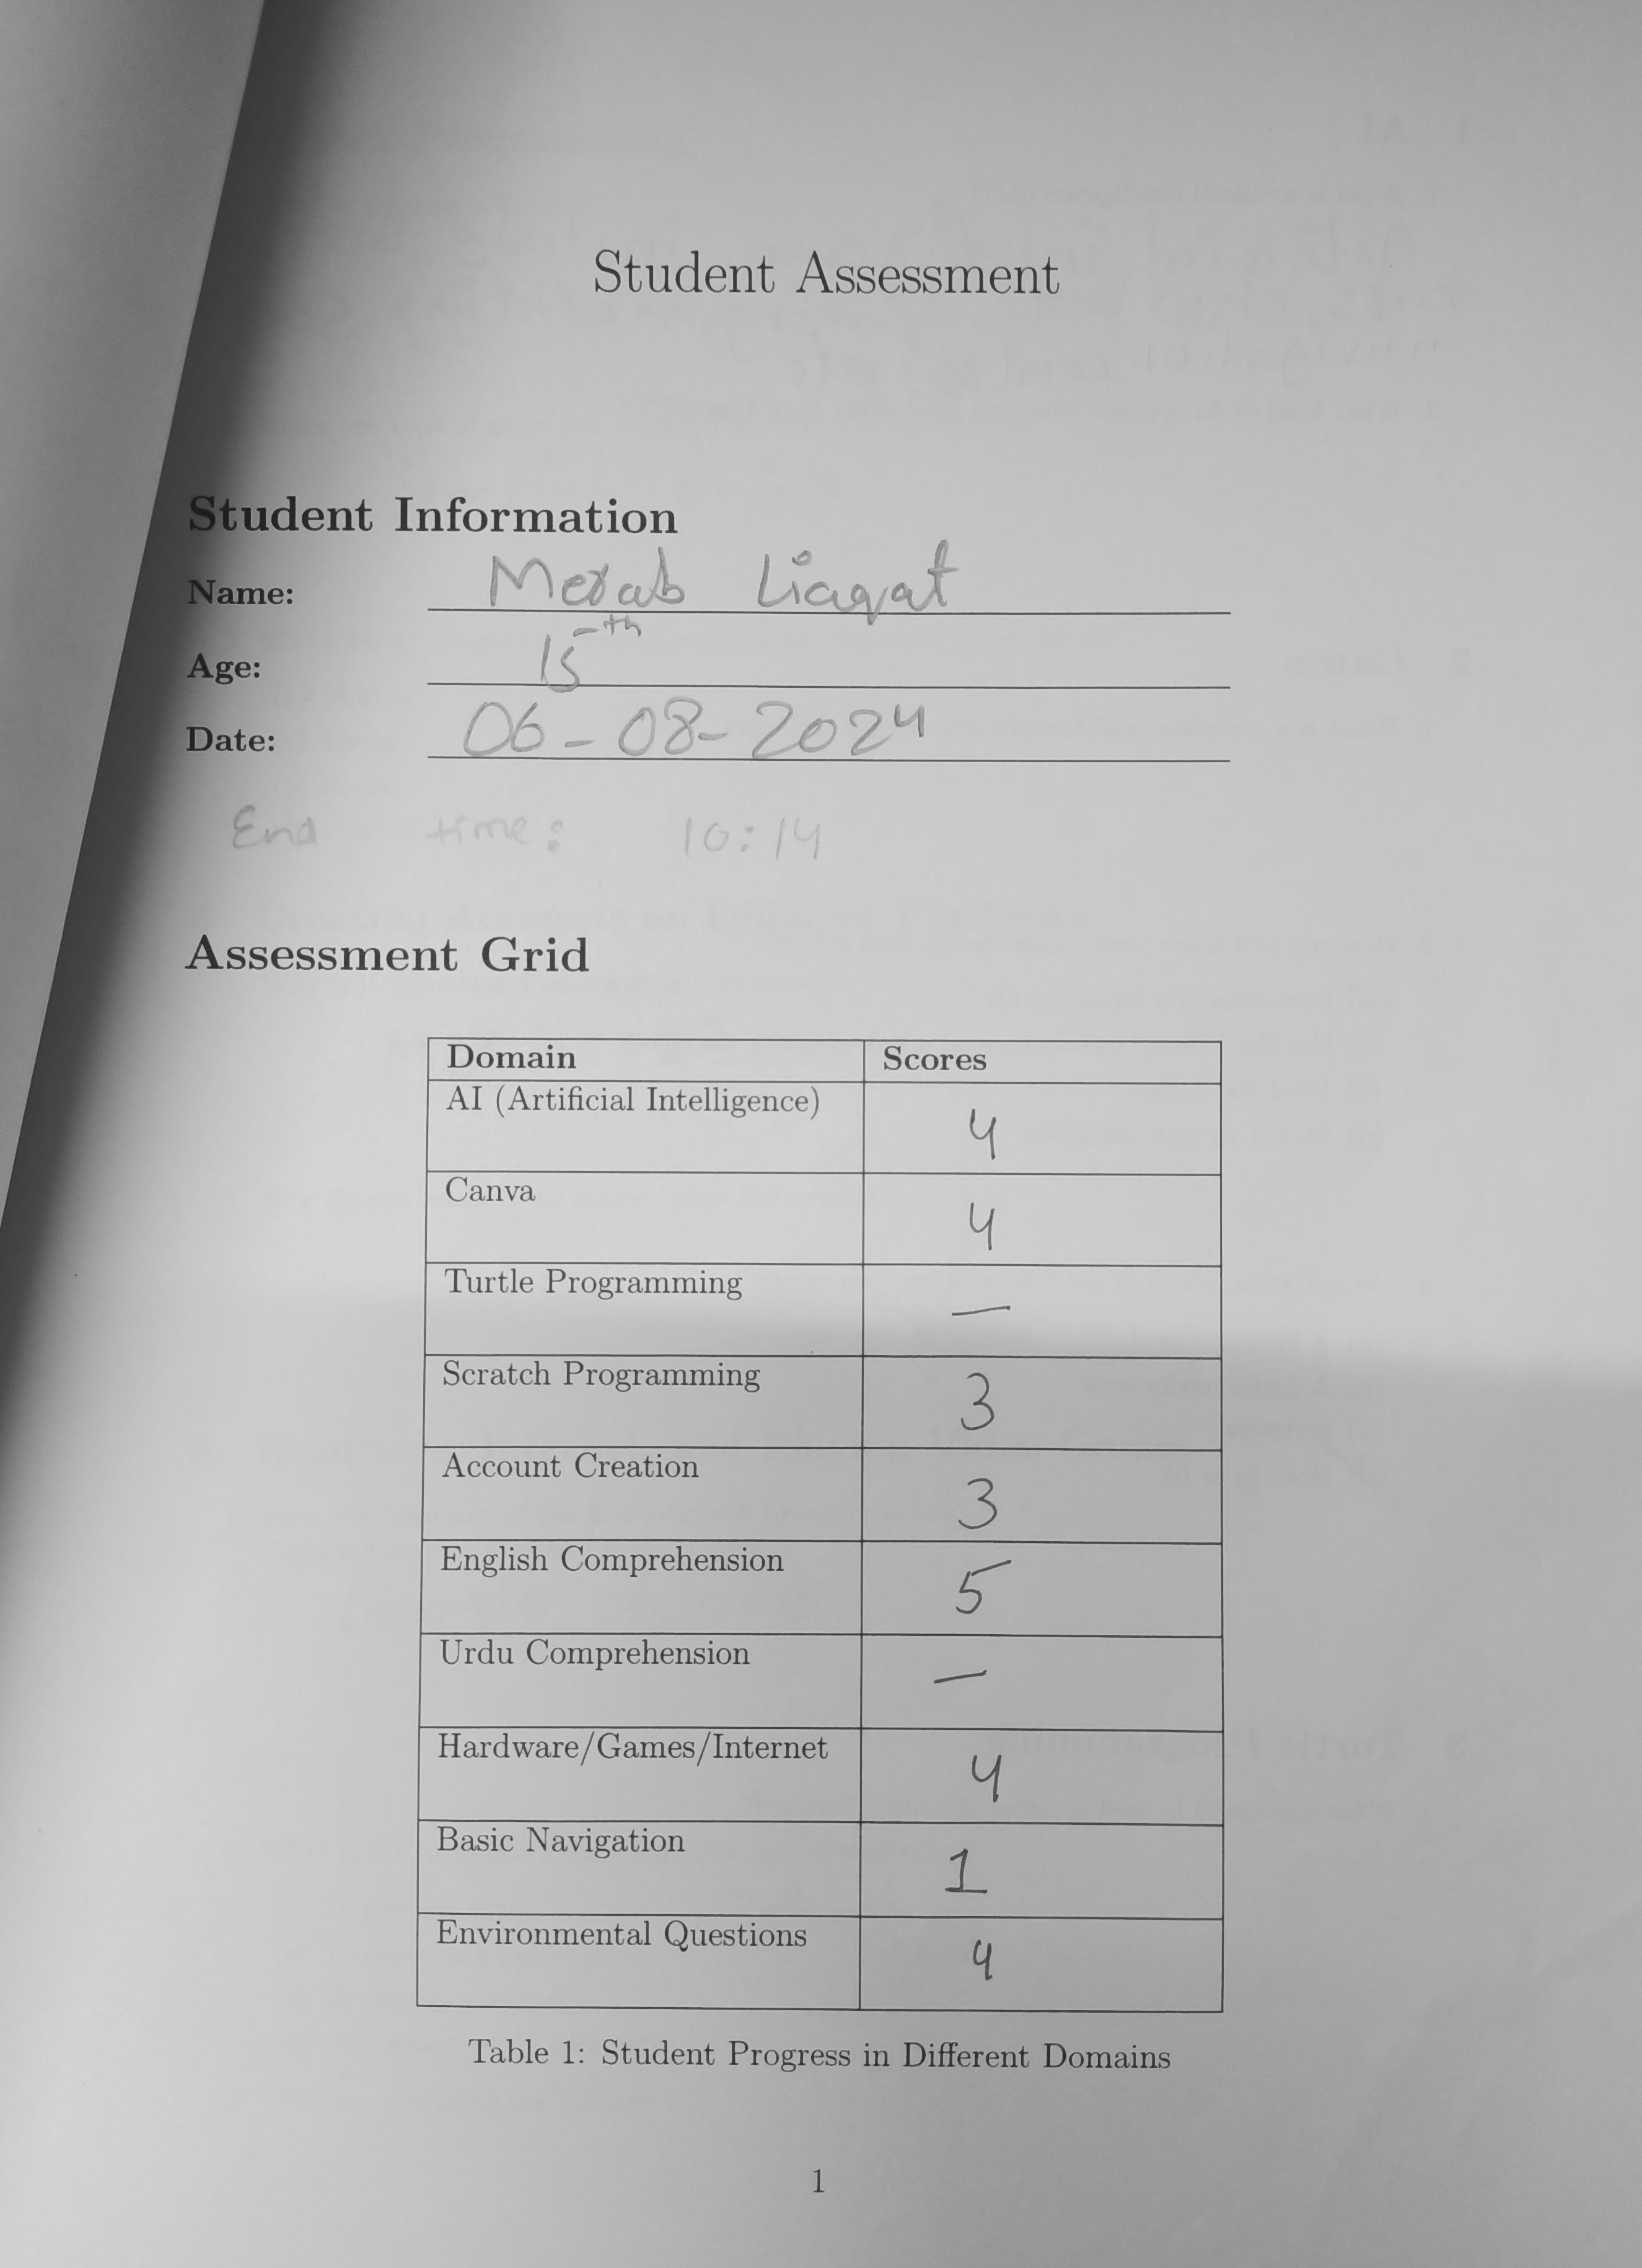 Student Assessment
Student Information
Name: Merab Liaqat
Age: 15th
Date: 06-08-2024
End time: 10:14
Assessment Grid
Domain Scores
AI (Artificial Intelligence) 4
Canva 4
Turtle Programming —
Scratch Programming 3
Account Creation 3
English Comprehension 5
Urdu Comprehension —
Hardware/Games/Internet 4
Basic Navigation 1
Environmental Questions 4
Table 1: Student Progress in Different Domains
1